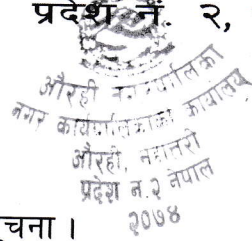 प्रदेश नं. २,
औरही नगरपालिका
नगर कार्यपालिकाको कार्यालय
औरही, महोत्तरी
प्रदेश नं.२ नेपाल
२०७४
चना ।